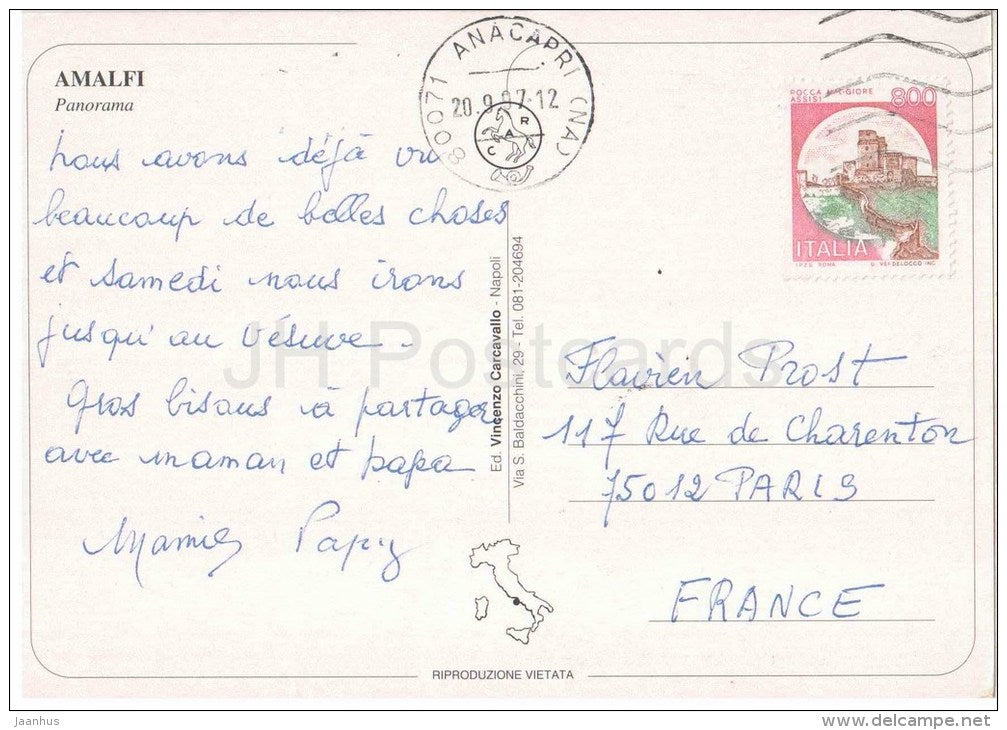 AMALFI
Panorama
nous avons déjà vu
beaucoup de belles choses
et samedi nous irons
jusqu'au Vésuve.
Gros bisous à partager
avec maman et papa
Mamie Papy
80071 ANACAPRI (NA)
20.9.97-12
CAR
ROCCA MAGGIORE
ASSISI
800
ITALIA
I.P.Z.S. ROMA
Ed. Vincenzo Carcavallo - Napoli
Via S. Baldacchini, 29 - Tel. 081-204694
Flavien Prost
117 Rue de Charenton
75012 PARIS
FRANCE
RIPRODUZIONE VIETATA
JH Postcards
jaanhus
www.delcampe.net